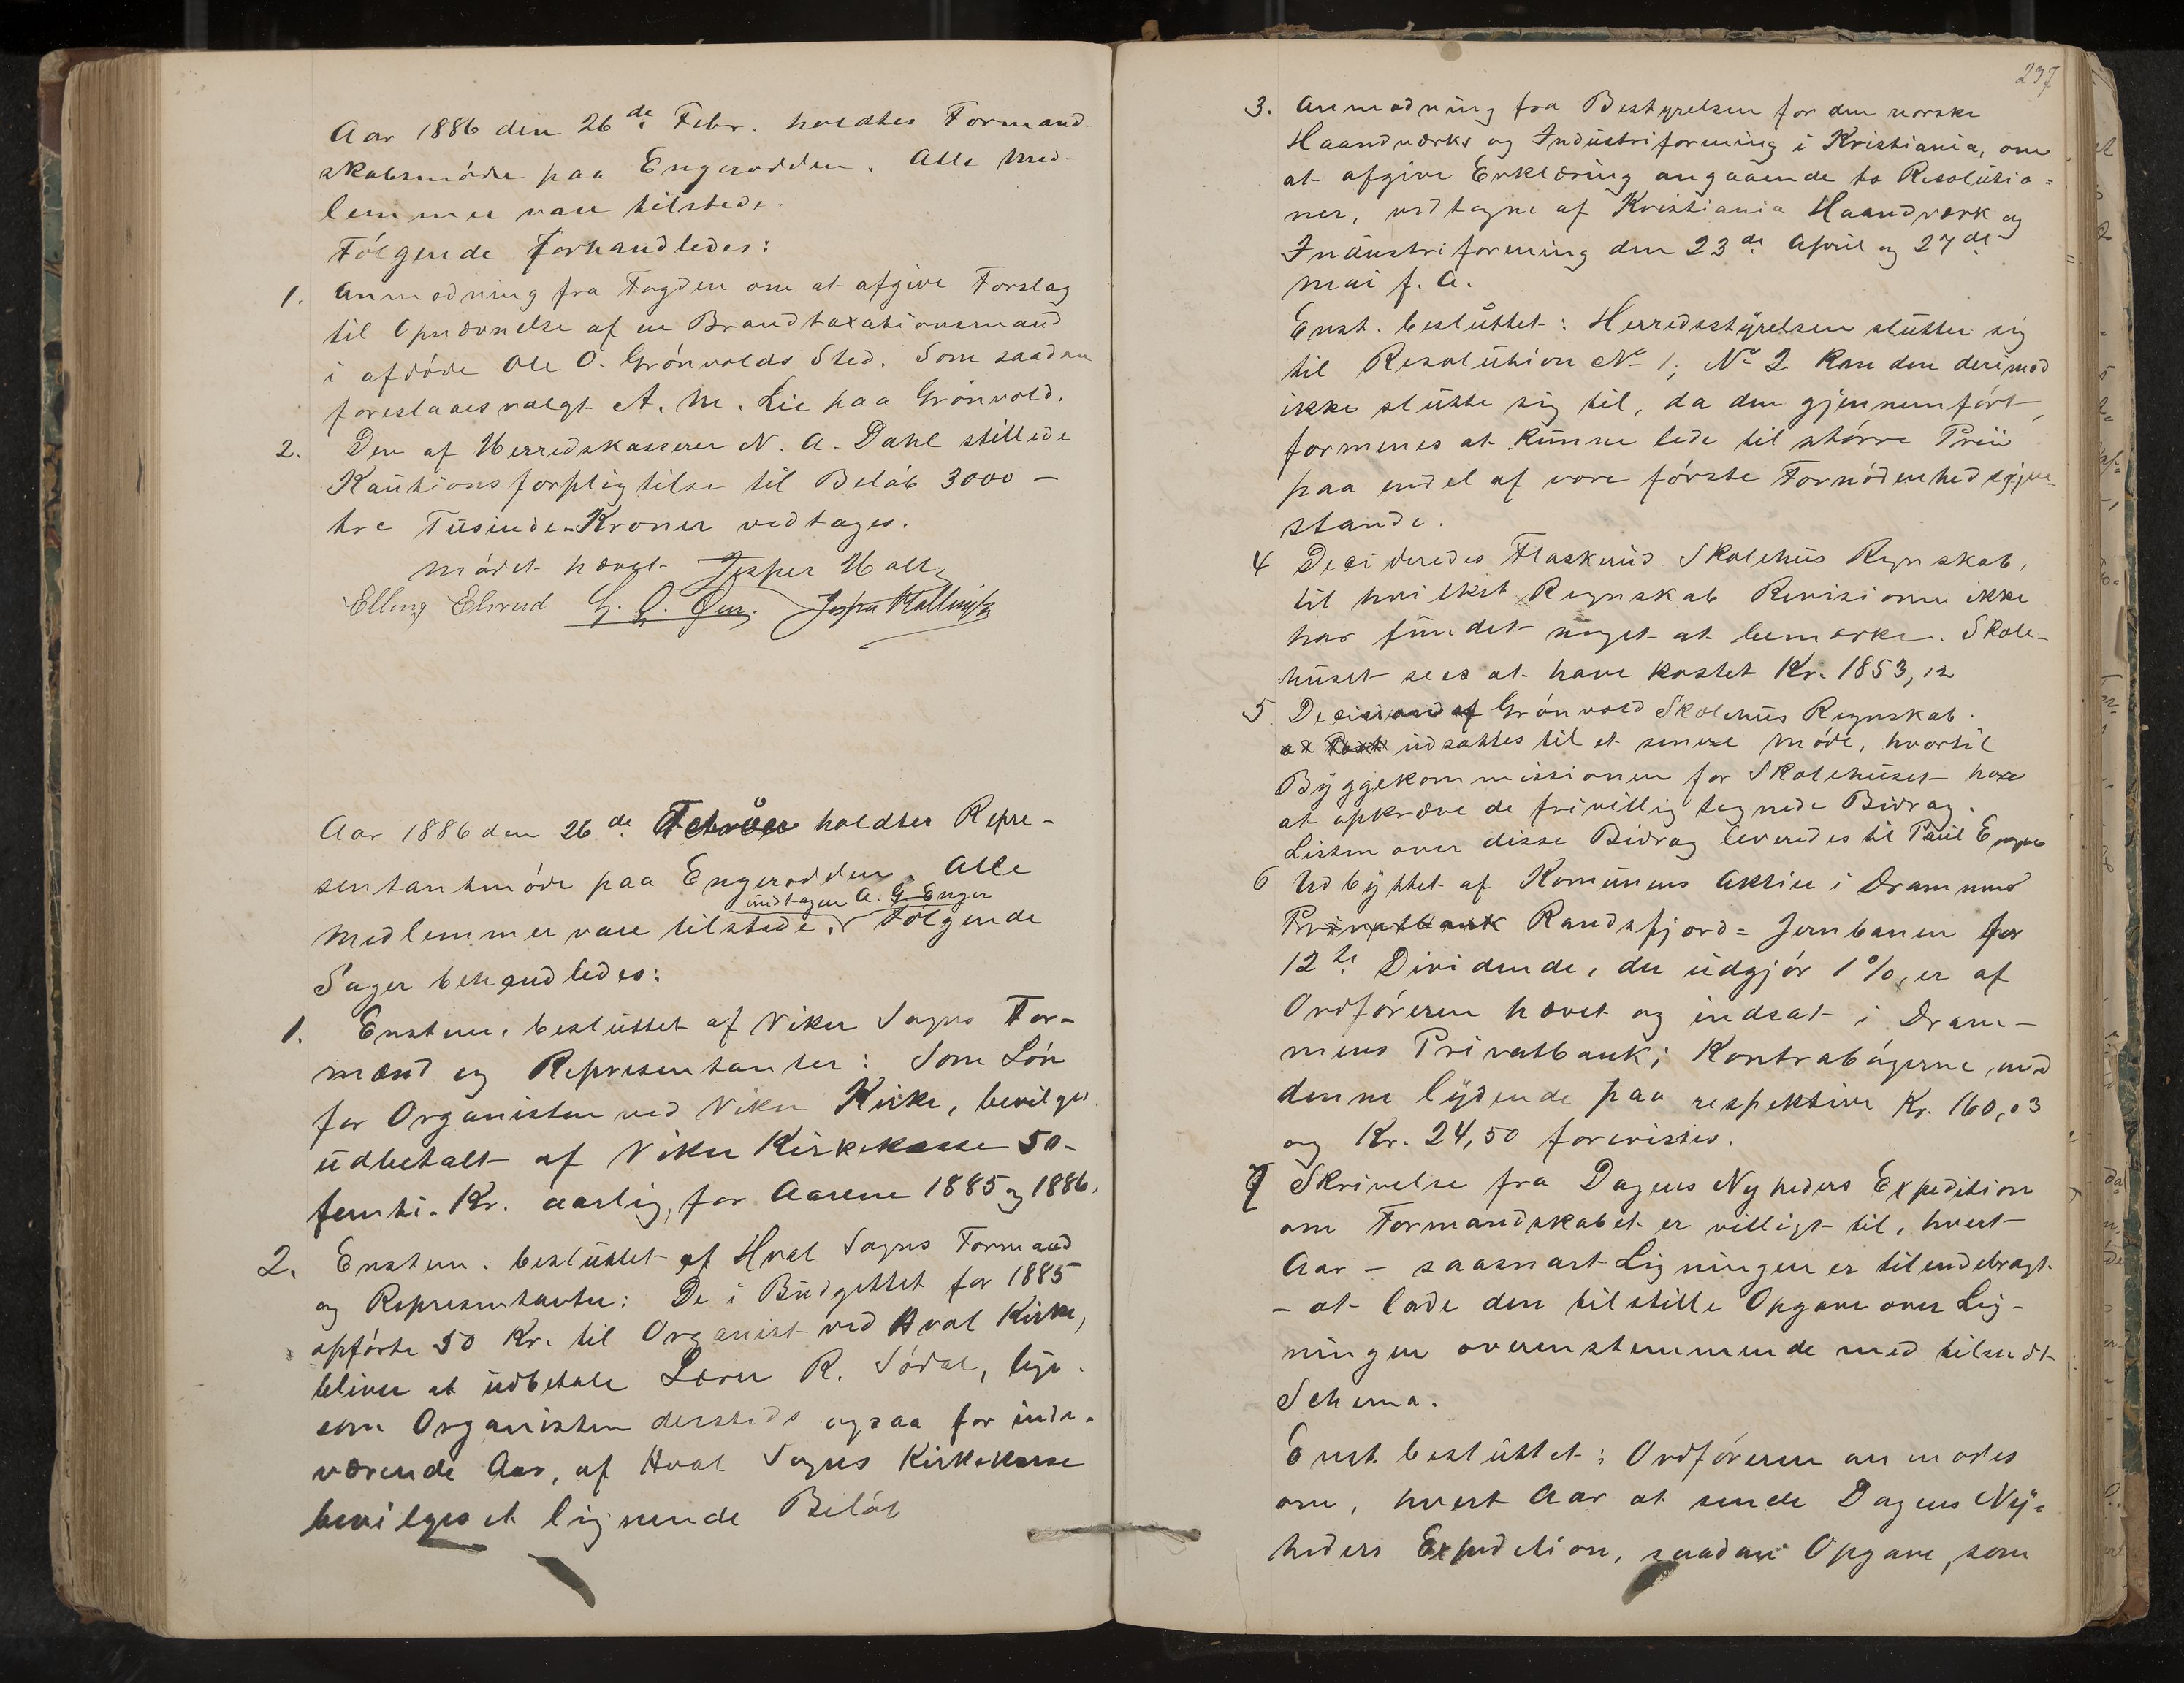 Aar 1886 den 26de Febr. holdtes Formand-
skabsmøde paa Engerodden. Alle Med-
lemmer vare tilstede.
Følgende forhandledes:
1. Anmodning fra Fogden om at afgive Forslag
til Opnævnelse af en Brandtaxationsmand
i afdøde Ole O. Grønvolds Sted. Som saadan
foreslaaes valgt A. M. Lie paa Grønvold.
2. Den af Herredskasserer N. A. Dahl stillede
Kautionsforpligtilse til Beløb 3000 –
tre Tusinde Kroner vedtages.
Mødet hævet Jesper Valle
Elling Elsrud G. G.
Aar 1886 den 26de Februar holdtes Repre-
sentantmøde paa Engerodden. Alle
undtagen A. G. Enger
Medlemmer vare tilstede. Følgende
Sager behandledes:
1. Enstem. besluttet af Viker Sogns For-
mænd og Representanter: Som Løn
for Organisten ved Viker Kirke, bevilges
udbetalt af Viker Kirkekasse 50-
femti- Kr. aarlig, for Aarene 1885 og 1886.
2. Enstem. besluttet af Hval Sogns Formænd
og Representanter: De i Budgettet for 1885
opførte 50 Kr. til Organist ved Hval Kirke,
bliver at udbetale Lærer R. Sødal, lige-
som Organisten dersteds ogsaa for inde-
værende Aar, af Hval Sogns Kirkekasse
bevilges et lignende Beløb
237
3. Anmodning fra Bestyrelsen for den norske
Haandværks og Industriforening i Kristiania, om
at afgive Erklæring angaaende to Resolutio=
ner, vedtagne af Kristiania Haandværk og
Industriforening den 23de April og 27de
Mai f. A.
Enst. besluttet: Herredsstyrelsen slutter sig
til Resolution No 1; No 2 kan den derimod
ikke slutte sig til, da den gjennemført,
formenes at kunne lede til større Priis
paa endel af vore første Fornødenhedsgjen-
stande.
4 Decideredes Flaskerud Skolehus Regnskab,
til hvilket Regnskab Revisionen ikke
har fundet noget at bemærke. Skole-
huset sees at have kostet Kr. 1853,12
5. Decision af Grønvold Skolehus Regnskab.
udsattes til et senere Møde, hvortil
Byggekommissionen for Skolehuset har
at opkræve de frivillig tegnede Bidrag.
Listen over disse Bidrag leveredes til Paul Enger
6 Udbyttet af Komunens Aktier i Drammens
Privatbank Randsfjord= Jernbanen for
12te Dividende, der udgjør 1%, er af
Ordføreren hævet og indsat i Dram-
mens Privatbank; Kontrabøgerne med
denne lydende paa respektive Kr. 160,03
og Kr. 24,50 forevistes.
7 Skrivelse fra Dagens Nyheders Expedition
om Formandskabet er villigt til, hvert
Aar – saasnart Ligningen er tilendebragt
– at lade den tilstille Opgave over Lig-
ningen overenstemmende med tilsendt
Schema.
Enst. besluttet: Ordføreren anmodes
om, hvert Aar at sende Dagens Ny=
heders Expedition, saadan Opgave, som